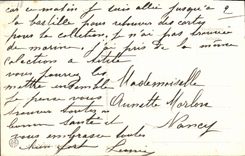 car ce matin je suis allée jusqu'à
la bastille pour retrouver des cartes
pour ta collection, je n'ai pas trouvée
de marine, j'ai pris de la même
colection a Estelle
vous pourrez les
mettre ensemble Mademoiselle
Je pense vous
trouver toutes en Annette Morlon
bonne santé et Nancy
vous embrasse toutes
bien fort